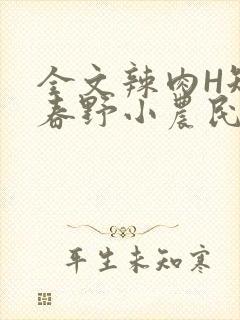 全文辣肉H短
春野小农民
平生未知寒